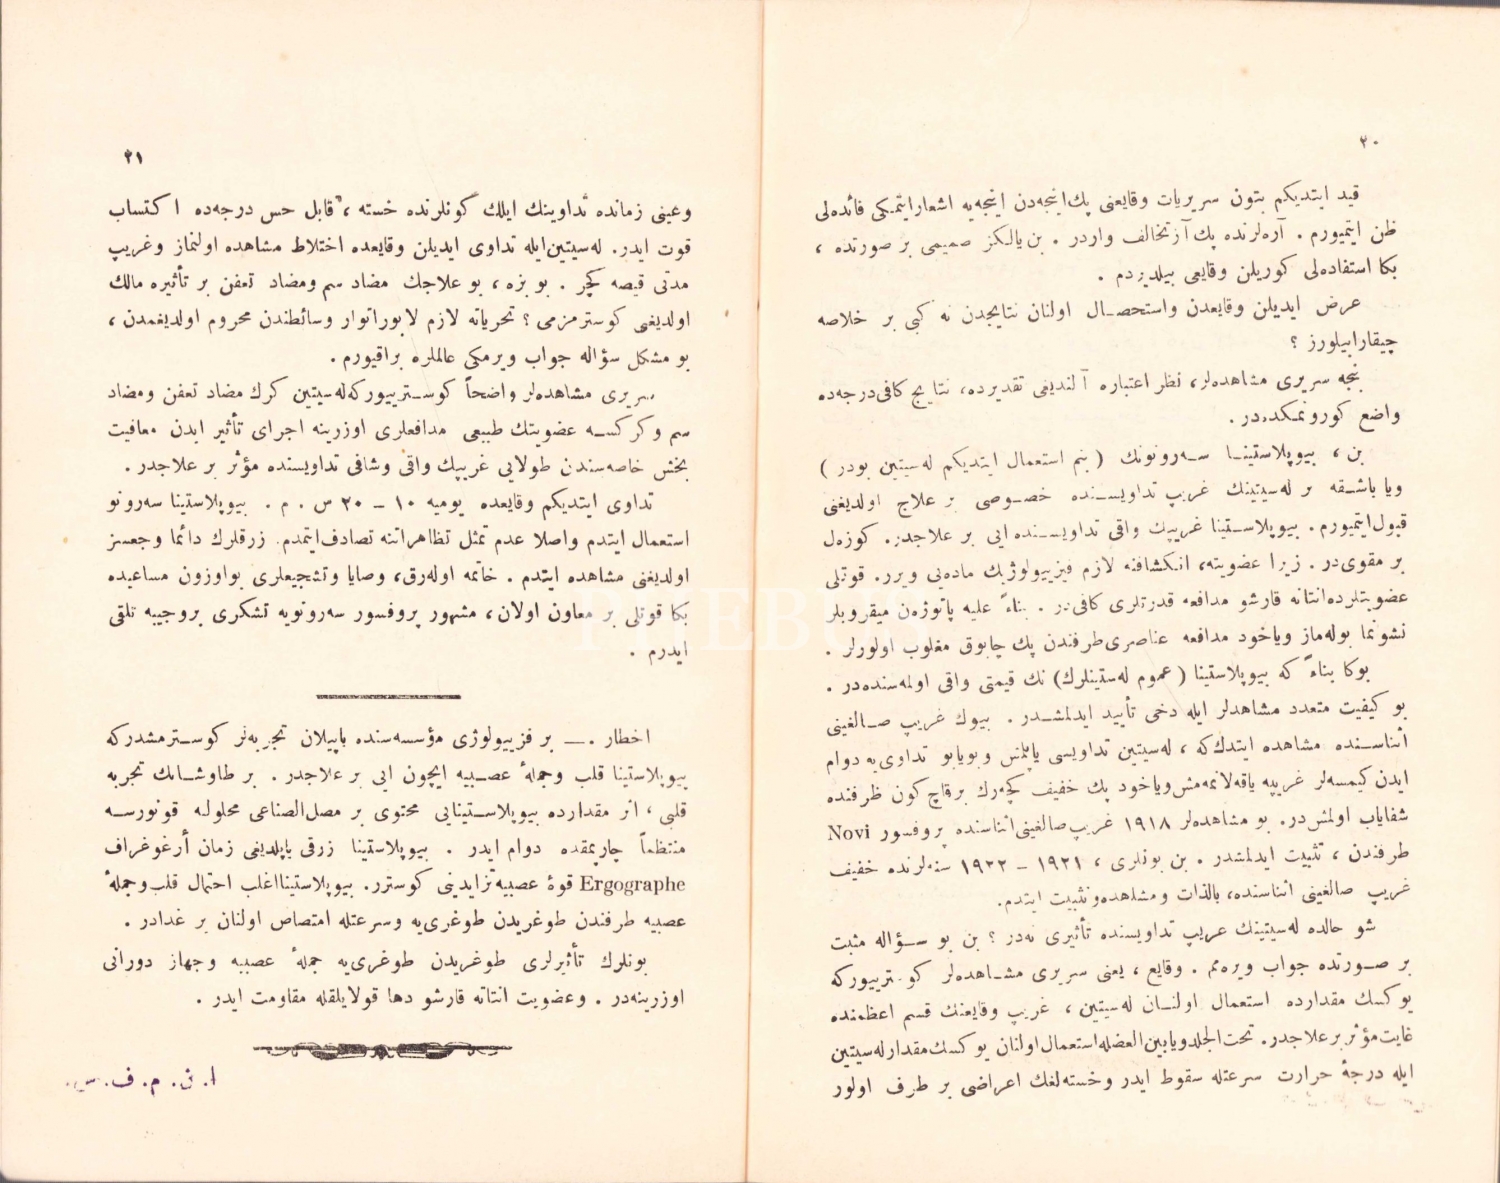 ٢٠
قيد ايتديكم بتون سريريات وقايعنى پك اينجه‌دن اينجه‌يه اشعار ايتمكى فائده‌لى
ظن ايتميورم . آره‌لرنده پك آز تخالف واردر . بن يالكز صميمى بر صورتده ،
بكا استفاده‌لى كوريلن وقايعى بيلديردم .
عرض ايديلن وقايعدن واستحصـال اولنان نتايجدن نه كبى بر خلاصه
چيقارابيلورز ؟
نجه سريرى مشاهده‌لر، نظر اعتباره آلنديغى تقديرده، نتايج كافى درجه‌ده
واضح كورونمكده‌در .
بن ، بيوپلاستينـا سـه‌رونونك ( بنم استعمال ايتديكم له‌سيتين بودر )
ويا باشـقه بر له‌سيتينك غريپ تداويسـنده خصـوصى بر علاج اولديغنى
قبول ايتميورم . بيوپلاسـتينا غريپك واقى تداويسـنده ايى بر علاجدر. كوزه‌ل
بر مقوى‌در . زيرا عضويته، انكشافنه لازم فيزييولوژيك ماده‌يى ويرر. قوتلى
عضويتلرده انتانه قارشو مدافعه قدرتلرى كافى‌در . بناءً عليه پاتوژه‌ن ميقروبلر
نشونما بوله‌ماز وياخود مدافعه عناصرى طرفندن پك چابوق مغلوب اولورلر .
بوكا بناءً كه بيوپلاستينا (عموم له‌ستينلرك) نك قيمتى واقى اولمه‌سنده‌در .
بو كيفيت متعدد مشاهدلر ايله دخى تأييد ايدلمشـدر . بيوك غريپ صـالغينى
اثناسـنده مشاهده ايتدك كه ، له‌سيتين تداويسى ياپلمش وبويابو تداوى‌يه دوام
ايدن كيمسه‌لر غريپه ياقه‌لانمه‌مش وياخود پك خفيف كچه‌رك برقاچ كون ظرفنده
شفاياب اولمش‌در. بو مشاهده‌لر ١٩١٨ غريپ صالغينى اثناسنده پروفسور Novi
طرفندن ، تثبيت ايدلمشدر . بن بونلرى ، ١٩٢١ – ١٩٢٢ سنه‌لرنده خفيف
غريپ صالغينى اثناسنده، بالذات ومشاهده وتثبيت ايتدم.
شو حالده له‌سيتينك غريپ تداويسنده تأثيرى نه‌در ؟ بن بو سـؤاله مثبت
بر صـورتده جواب ويره‌مم . وقايع ، يعنى سريرى مشـاهده‌لر كوستريیوركه
يوكسك مقدارده استعمال اولنـان له‌سيتين ، غريپ وقايعنك قسم اعظمنده
غايت مؤثر بر علاجدر. تحت الجلد ويا بين العضله استعمال اولنان يوكسك مقدار له‌سيتين
ايله درجۀ حرارت سرعتله سقوط ايدر وخسته‌لغك اعراضى بر طرف اولور
٢١
وعينى زمانده تداوينك ايلك كونلرنده خسته ، قابل حس درجه‌ده اكتساب
قوت ايدر. له‌سيتين ايله تداوى ايديلن وقايعده اختلاط مشاهده اولنماز وغريپ
مدتى قيصه كچر . بو بزه ، بو علاجك مضاد سم ومضاد تعفن بر تأثيره مالك
اولديغنى كوسترمزمى ؟ تحرياته لازم لابوراتوار وسائطندن محروم اولديغمدن ،
بو مشكل سؤاله جواب ويرمكى عالملره براقيورم .
سريرى مشاهده‌لر واضحاً كوسـتريیوركه له‌سيتين كرك مضاد تعفن ومضاد
سم وكركسـه عضويتك طبيعى مدافعلرى اوزرينه اجراى تأثير ايدن معافيت
بخش خاصه‌سندن طولايى غريپك واقى وشافى تداويسنده مؤثر بر علاجدر .
تداوى ايتديكم وقايعده يوميه ١٠ – ٢٠ س . م . بيوپلاستينا سه‌رونو
استعمال ايتدم واصلا عدم تمثل تظاهراتنه تصادف ايتمدم. زرقلرك دائما وجعسز
اولديغنى مشاهده ايتدم . خاتمه اوله‌رق، وصايا وتشجيعلرى بو اوزون مساعيده
بكا قوتلى بر معاون اولان ، مشهور پروفسور سه‌رونويه تشكرى بر وجيبه تلقى
ايدرم .
اخطار . — بر فزييولوژى مؤسسه‌سنده ياپيلان تجربه‌لر كوسـترمشدركه
بيوپلاستينا قلب وجملۀ عصـبيه ايچون ايى بر علاجدر . بر طاوشـانك تجربه
قلبى ، اثر مقدارده بيوپلاسـتينايى محتوى بر مصل الصناعى محلولـه قونورسـه
منتظماً چارپمقده دوام ايدر . بيوپلاستينا زرقى ياپلديغى زمان أرغوغراف
Ergographe قوۀ عصبيه تزايدينى كوسترر. بيوپلاستينا اغلب احتمال قلب وجملۀ
عصبيه طرفندن طوغريدن طوغرى‌يه وسرعتله امتصاص اولنان بر غدادر .
بونلرك تأثيرلرى طوغريدن طوغرى‌يه جملۀ عصبيه وجهاز دورانى
اوزرينه‌در . وعضويت انتانه قارشو دها قولايلقله مقاومت ايدر .
ا. ق. م. ف. س.